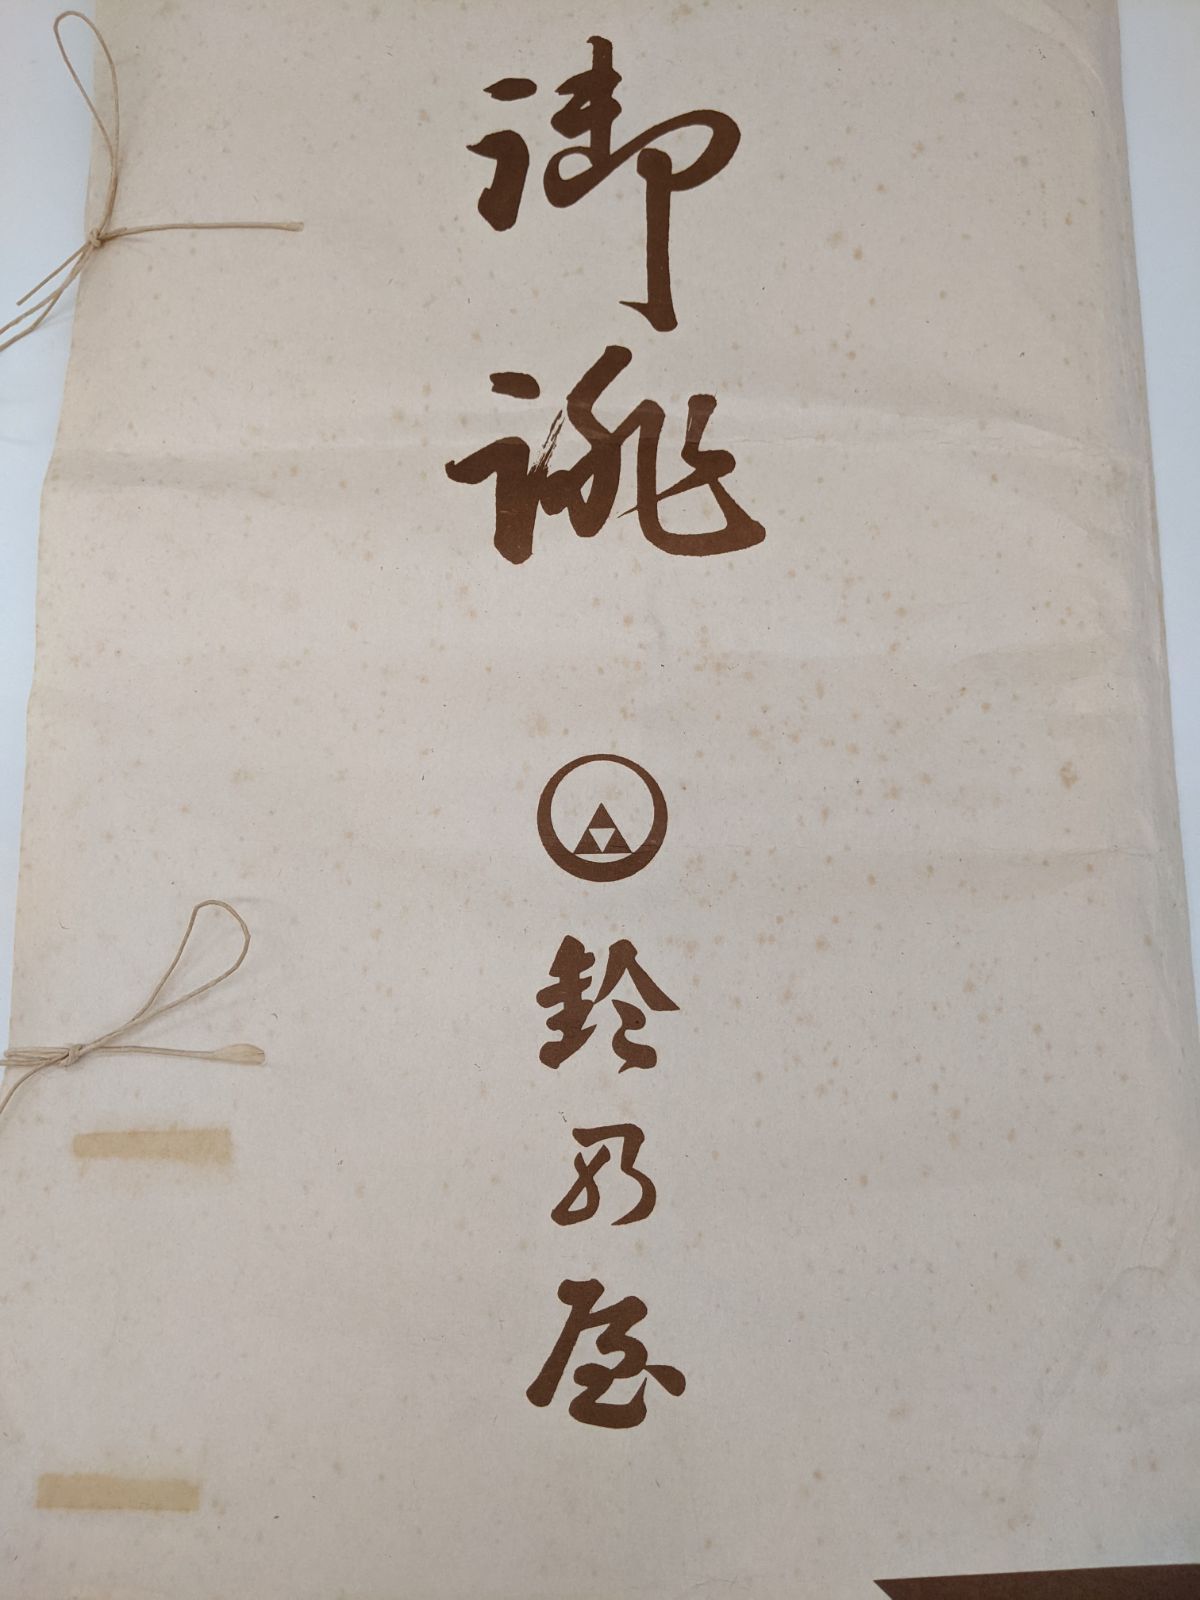 御誂
鈴乃屋